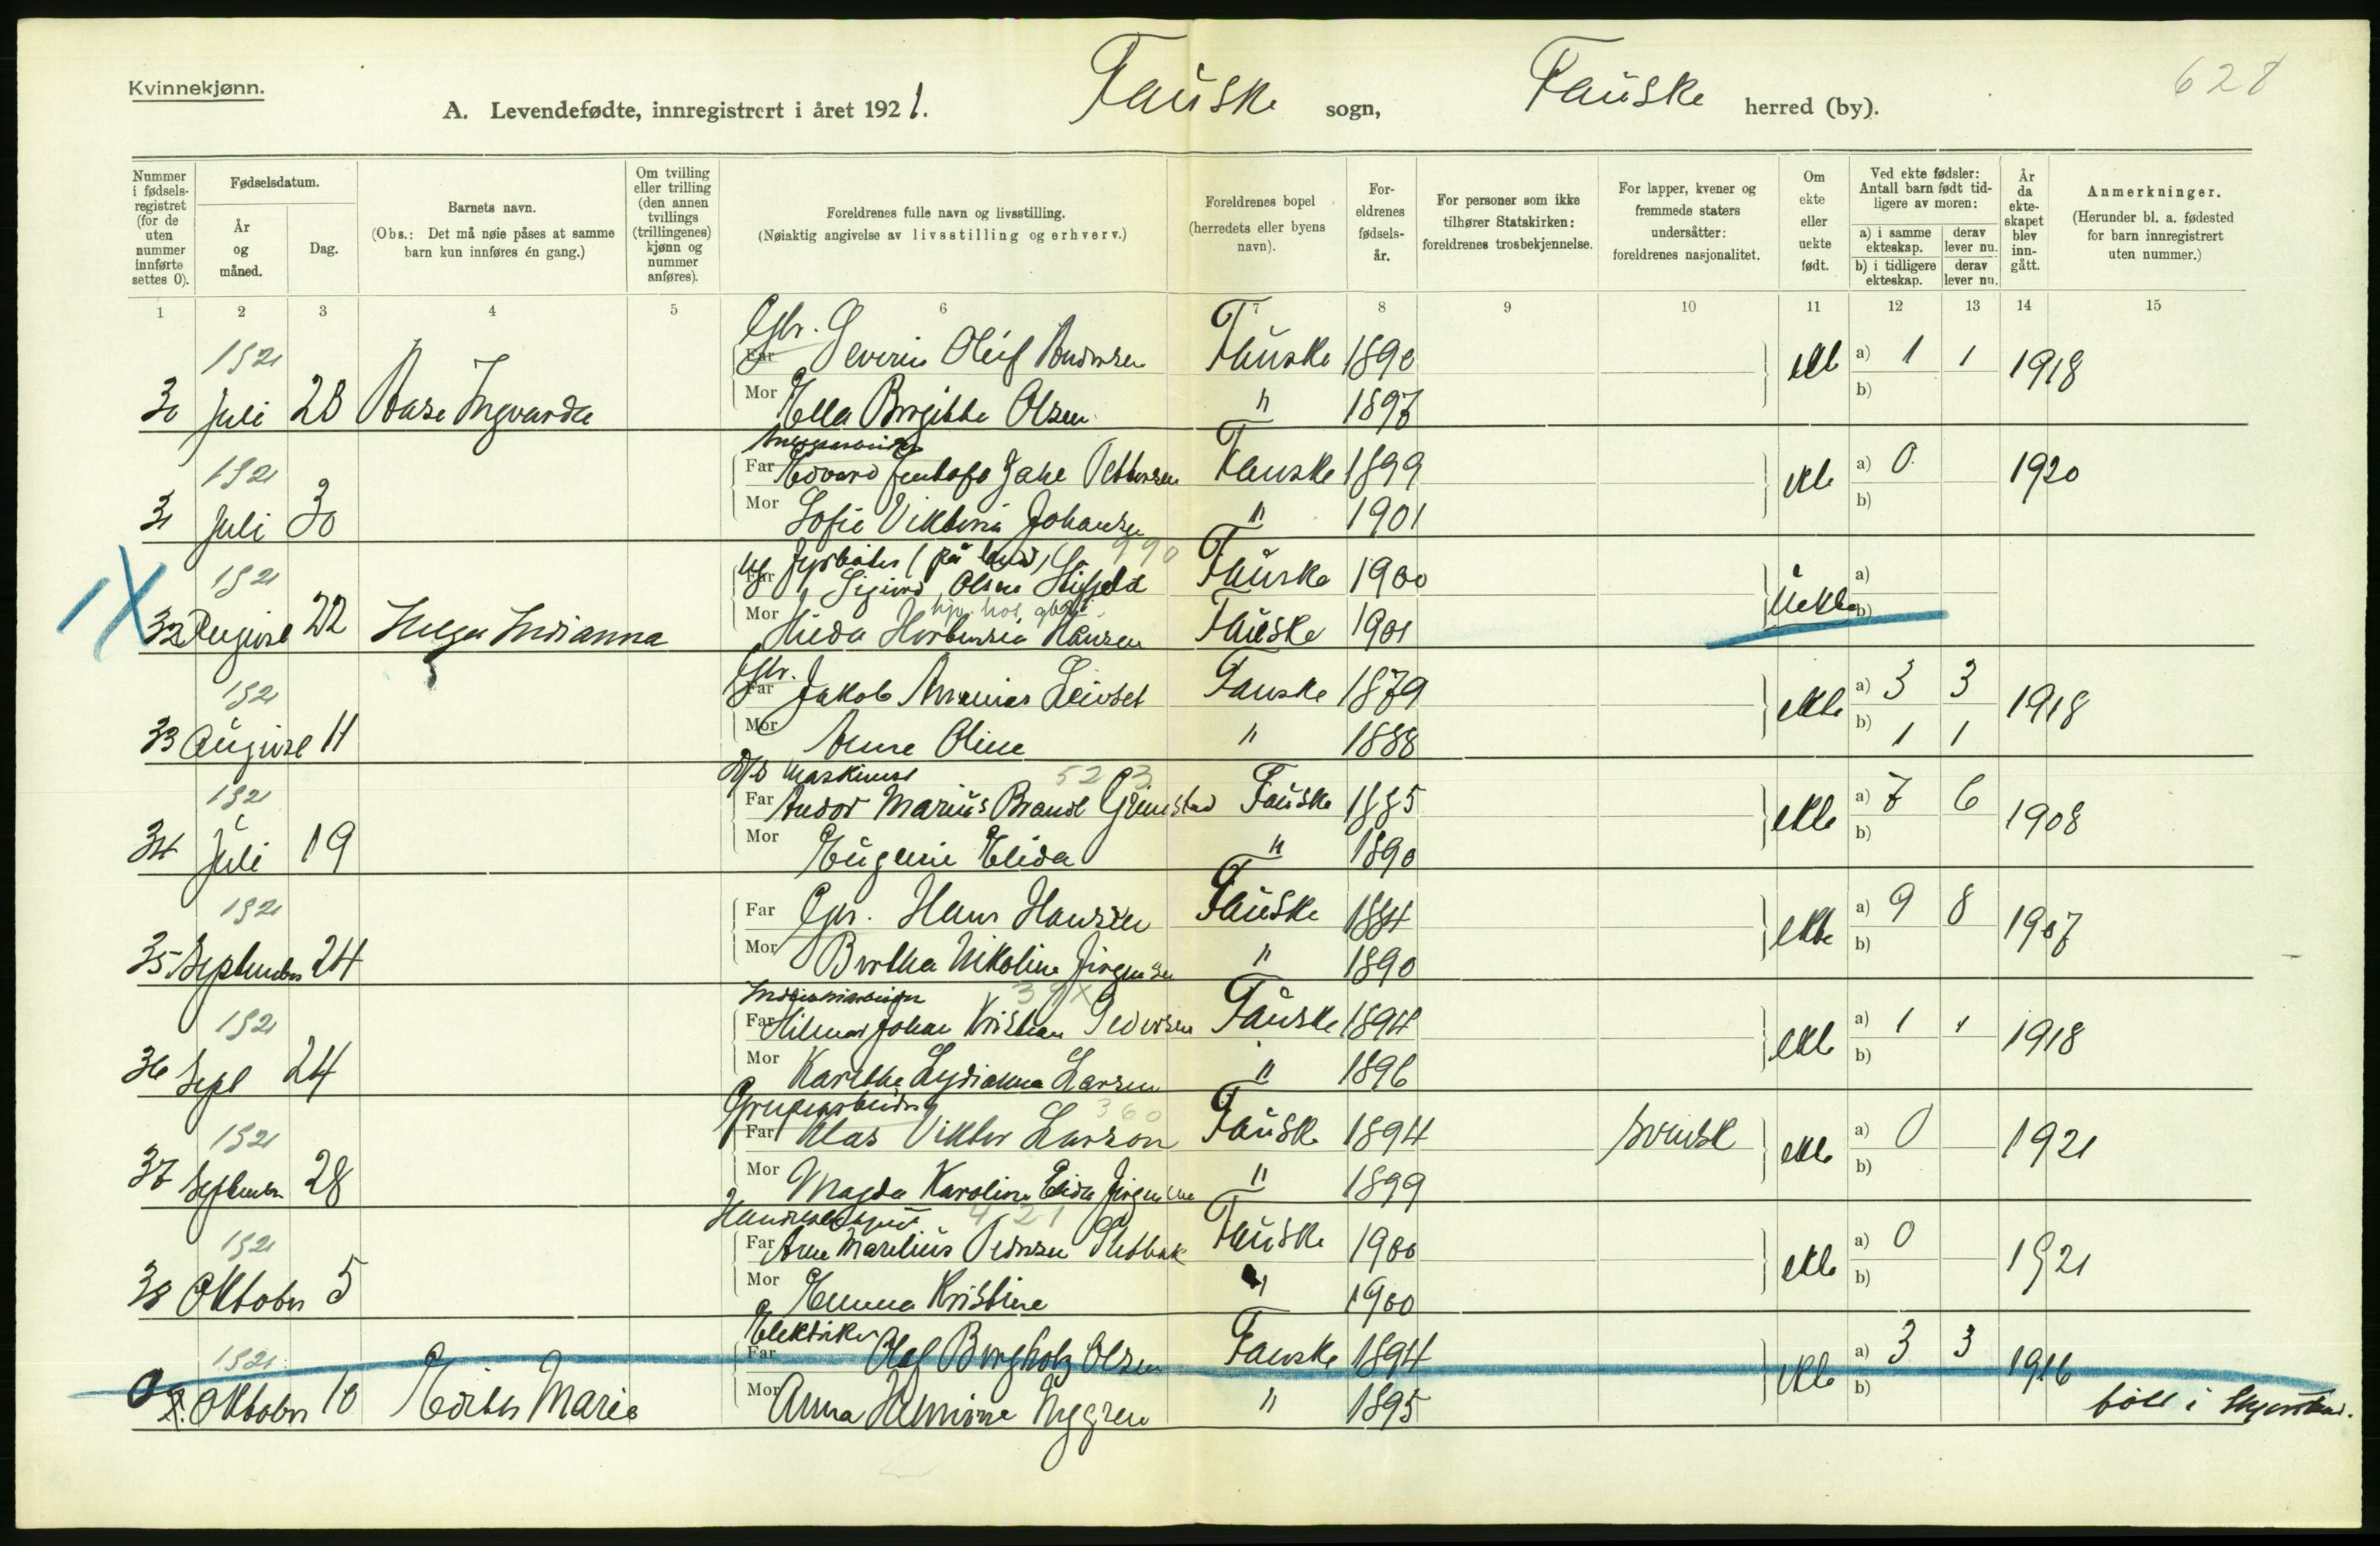 Kvinnekjønn.
628
A. Levendefødte, innregistrert i året 1921. Fauske sogn, Fauske herred (by).
Nummer i fødsels-registret (for de uten nummer innførte settes 0).
Fødselsdatum.
År og måned.
Dag.
Barnets navn.
(Obs.: Det må nøie påses at samme barn kun innføres én gang.)
Om tvilling eller trilling (den annen tvillings (trillingenes) kjønn og nummer anføres).
Foreldrenes fulle navn og livsstilling.
(Nøiaktig angivelse av livsstilling og erhverv.)
Foreldrenes bopel (herredets eller byens navn).
For-eldrenes fødsels-år.
For personer som ikke tilhører Statskirken: foreldrenes trosbekjennelse.
For lapper, kvener og fremmede staters undersåtter: foreldrenes nasjonalitet.
Om ekte eller uekte født.
Ved ekte fødsler: Antall barn født tid-ligere av moren:
a) i samme ekteskap. derav lever nu.
b) i tidligere ekteskap. derav lever nu.
År da ekte-skapet blev inn-gått.
Anmerkninger.
(Herunder bl. a. fødested for barn innregistrert uten nummer.)
1 2 3 4 5 6 7 8 9 10 11 12 13 14 15
Gbr.
1921 Far Severin Oluf Andersen Fauske 1890 ekte a) 1 1 1918
30 Juli 28 Aase Ingvarda Mor Ella Birgitte Olsen " 1897 b)
1921 Far Edvard Jentoft Pettersen Fauske 1899 ekte a) 0 1920
31 Juli 30 Mor Sofie Viktoria Johansen " 1901 b)
(på land) 990
1921 Far Sigurd Olsen Fauske 1900 Uekte a)
32 August 22 Helga Indianna Mor Hilda Hansen Fauske 1901 b)
Gbr.
1921 Far Jakob Ananias Leivset Fauske 1879 ekte a) 3 3 1918
33 August 11 Mor Anne Oline " 1888 b) 1 1
D/S Maskinist 523
1921 Far Andor Marius Brandt Grimstad Fauske 1885 ekte a) 7 6 1908
34 Juli 19 Mor Eugenie Elida " 1890 b)
1921 Far Gbr. Hans Hansen Fauske 1884 ekte a) 9 8 1907
35 September 24 Mor Bertha Nikoline Jørgensen " 1890 b)
39X
1921 Far Hilmar Johan Kristian Pedersen Fauske 1894 ekte a) 1 1 1918
36 Sept 24 Mor Karethe Lydianna Larsen " 1896 b)
Grubearbeider 360
1921 Far Klas Viktor Larson Fauske 1894 svensk ekte a) 0 1921
37 September 28 Mor Magda Karoline Elida Jørgensen " 1899 b)
421
1921 Far Arne Marelius Pedersen Fauske 1900 ekte a) 0 1921
38 Oktober 5 Mor Emma Kristine " 1900 b)
Elektriker
1921 Far Olaf Bergholtz Olsen Fauske 1894 ekte a) 3 3 1916
0 Oktober 10 Edith Marie Mor Anna Hermine Nygren " 1895 b) født i Skjerstad.